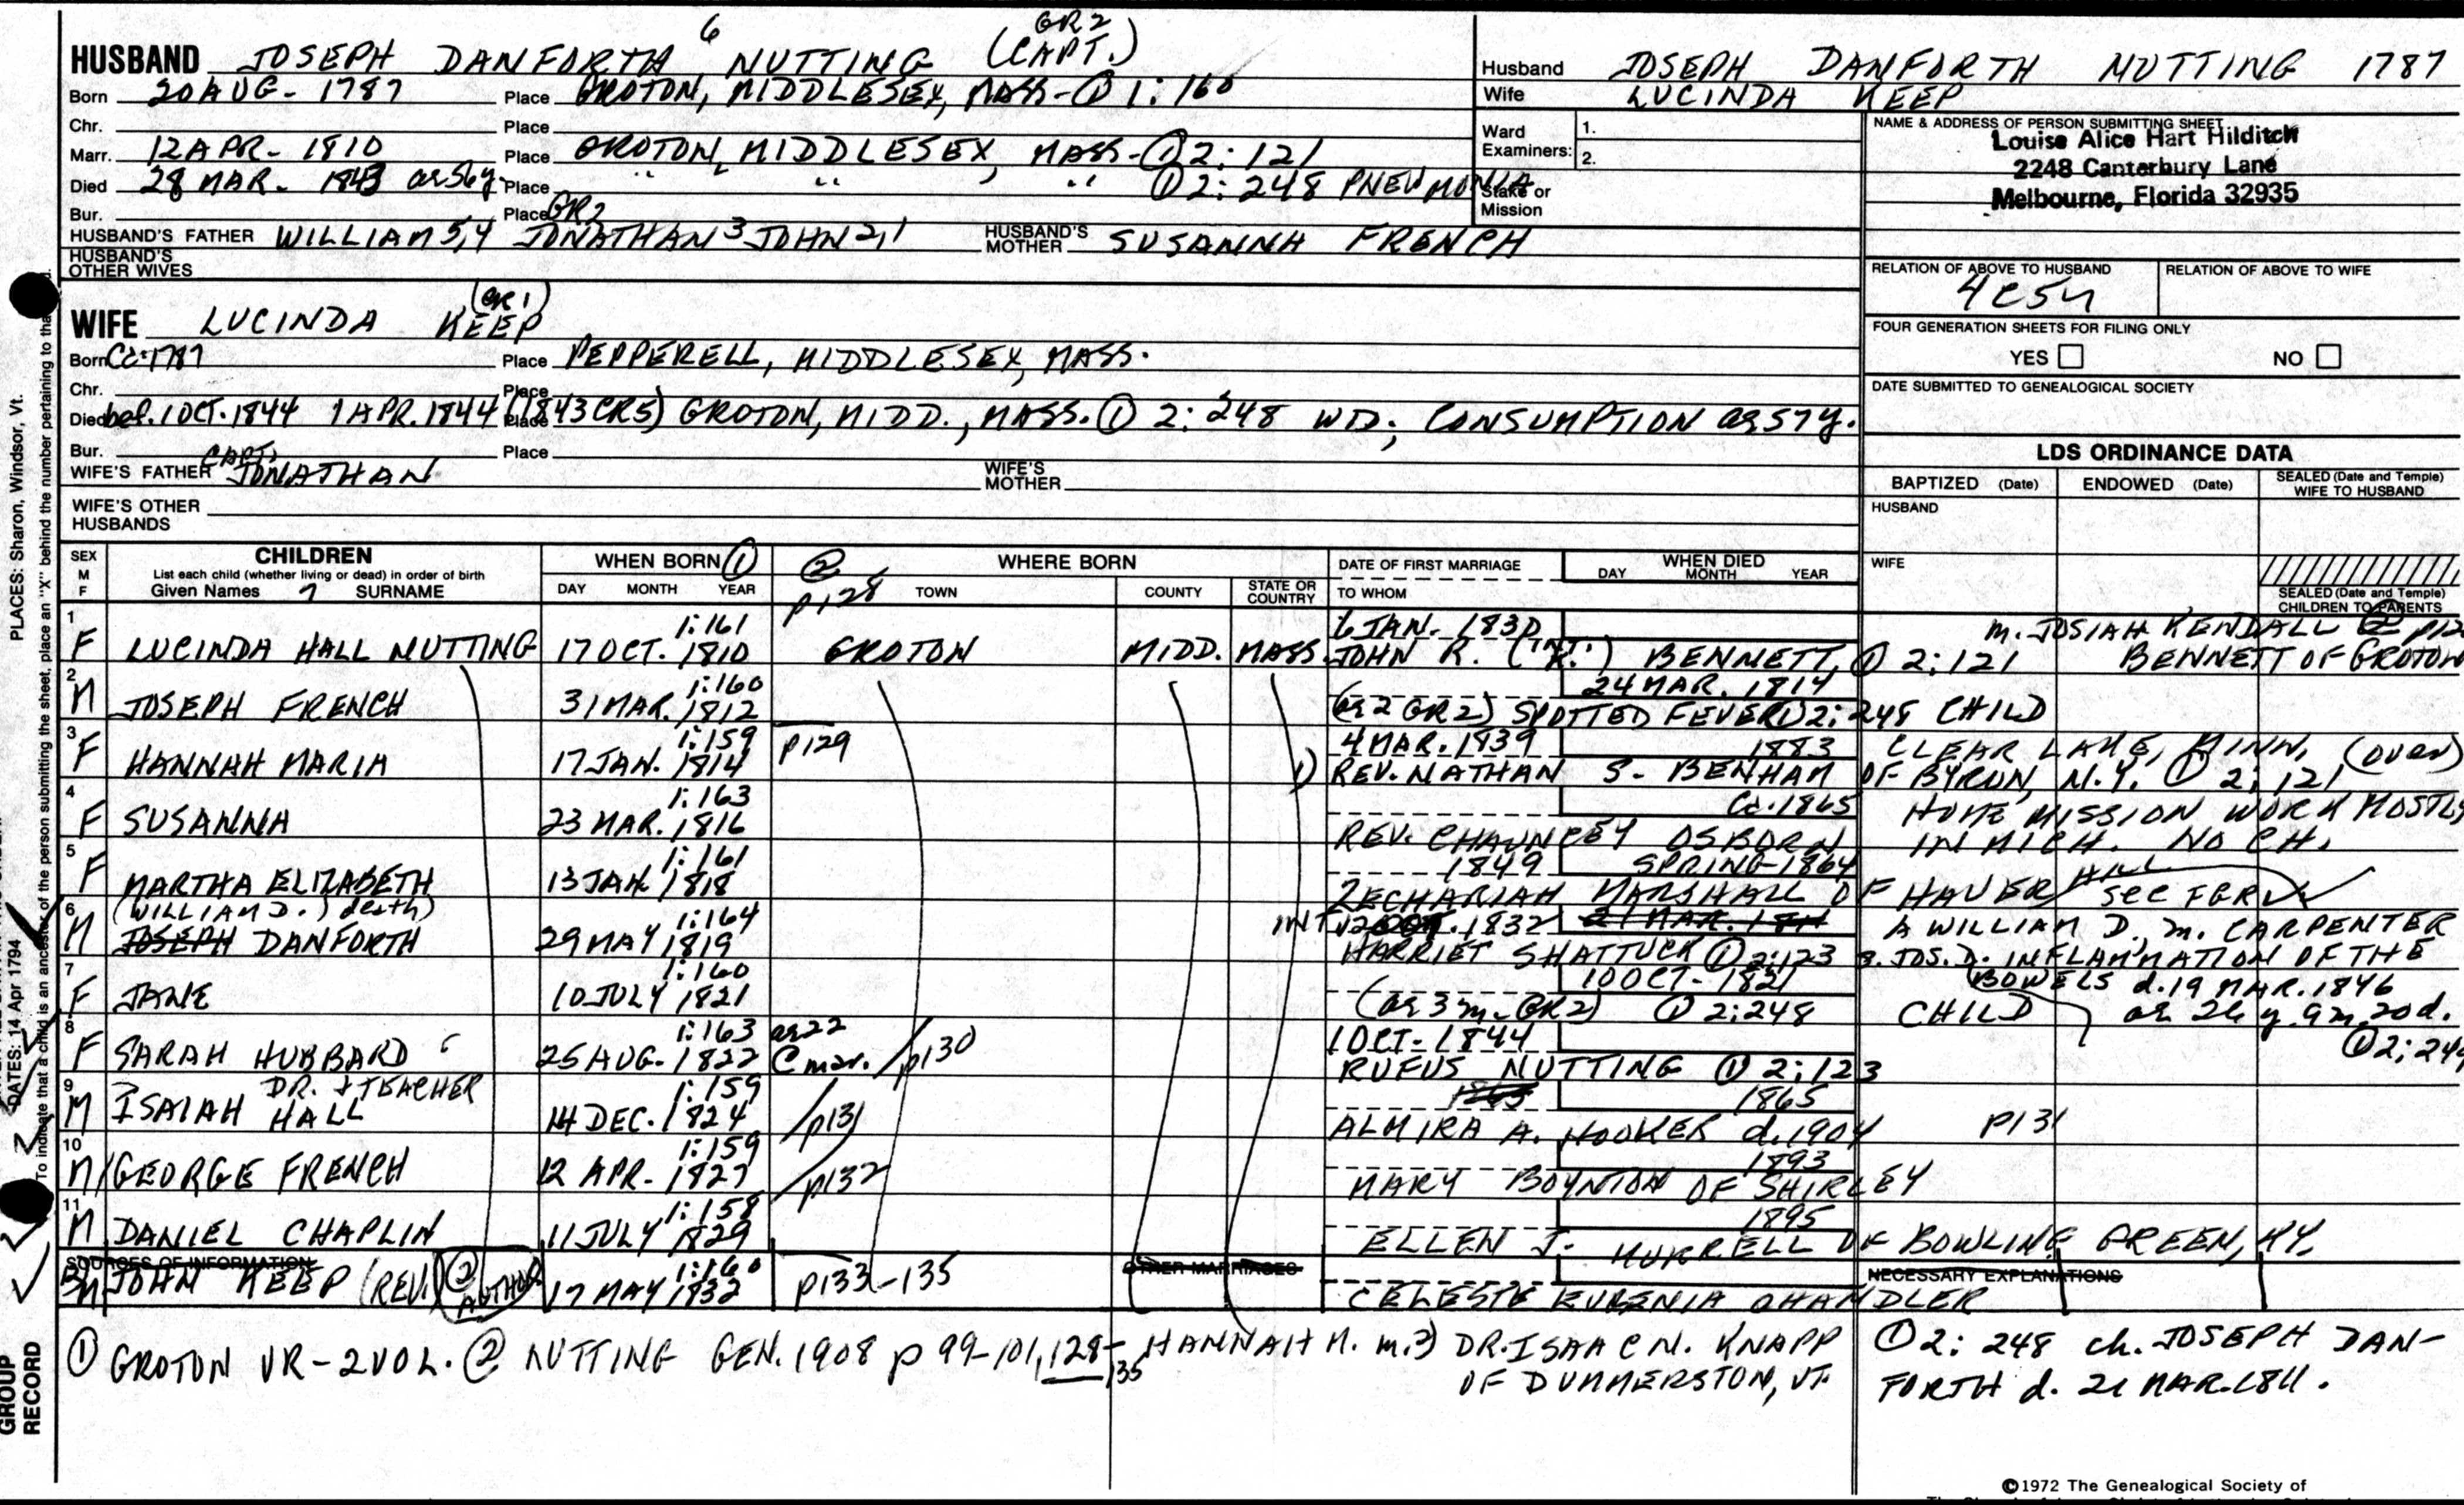 6 GR2
HUSBAND JOSEPH DANFORTH NUTTING (CAPT.)
Born 20 AUG - 1787 Place GROTON, MIDDLESEX, MASS - ① 1:160
Chr. Place
Marr. 12 APR - 1810 Place GROTON, MIDDLESEX, MASS - ① 2:121
Died 28 MAR - 1843 ae 56y. Place " " " " ① 2:248 PNEUMONIA
Bur. Place GR2
HUSBAND'S FATHER WILLIAM 5,4 JONATHAN 3 JOHN 2,1 HUSBAND'S MOTHER SUSANNA FRENCH
HUSBAND'S OTHER WIVES
Husband JOSEPH DANFORTH NUTTING 1787
Wife LUCINDA KEEP
Ward Examiners: 1.
2.
Stake or Mission
NAME & ADDRESS OF PERSON SUBMITTING SHEET
Louise Alice Hart Hilditch
2248 Canterbury Lane
Melbourne, Florida 32935
RELATION OF ABOVE TO HUSBAND RELATION OF ABOVE TO WIFE
FOUR GENERATION SHEETS FOR FILING ONLY
YES NO
DATE SUBMITTED TO GENEALOGICAL SOCIETY
(GR1)
WIFE LUCINDA KEEP
Born Ca. 1787 Place PEPPERELL, MIDDLESEX, MASS.
Chr. Place
Died bef. 1 OCT. 1844 1 APR. 1844 (1843 CR5) Place GROTON, MIDD., MASS. ① 2:248 WD; CONSUMPTION ae 57y.
Bur. Place
WIFE'S FATHER CAPT. JONATHAN WIFE'S MOTHER
WIFE'S OTHER HUSBANDS
LDS ORDINANCE DATA
BAPTIZED (Date) ENDOWED (Date) SEALED (Date and Temple) WIFE TO HUSBAND
HUSBAND
WIFE
SEALED (Date and Temple) CHILDREN TO PARENTS
SEX M F CHILDREN WHEN BORN ① ② WHERE BORN DATE OF FIRST MARRIAGE WHEN DIED
List each child (whether living or dead) in order of birth
Given Names 7 SURNAME DAY MONTH YEAR p128 TOWN COUNTY STATE OR COUNTRY TO WHOM DAY MONTH YEAR
1 1:161 6 JAN. 1830 m. JOSIAH KENDALL ② p12
F LUCINDA HALL NUTTING 17 OCT. 1810 GROTON MIDD. MASS. JOHN R. (INT. K.) BENNETT, ① 2:121 BENNETT OF GROTON
2 1:160 24 MAR. 1814
M JOSEPH FRENCH 31 MAR. 1812 (ae 2 GR2) SPOTTED FEVER ① 2:248 CHILD
3 1:159 p129 4 MAR. 1839 1883 CLEAR LAKE, MINN. (over)
F HANNAH MARIA 17 JAN. 1814 1) REV. NATHAN S. BENHAM OF BYRON, N.Y. ① 2:121
4 1:163 Ca. 1865 HOME MISSION WORK MOSTLY
F SUSANNA 23 MAR. 1816 REV. CHAUNCEY OSBORN IN MICH. NO CH.
5 1:161 1849 SPRING-1864
F MARTHA ELIZABETH 13 JAN. 1818 ZECHARIAH MARSHALL OF HAVERHILL see FGR
6 (WILLIAM D.) death) 1:164 INT 12 OCT. 1832 21 MAR. 1811 A WILLIAM D. m. CARPENTER
M JOSEPH DANFORTH 29 MAY 1819 HARRIET SHATTUCK ① 2:123 s. JOS. D. INFLAMMATION OF THE
7 1:160 10 OCT - 1821 BOWELS d. 19 MAR. 1846
F JANE 10 JULY 1821 (ae 3 m. GR2) ① 2:248 CHILD ae 26 y. 9 m. 20 d.
8 1:163 ae 22 1 OCT - 1844 ① 2:249
F SARAH HUBBARD 25 AUG - 1822 C mar. /p130 RUFUS NUTTING ① 2:123
9 DR. & TEACHER 1:159 1865 1865
M ISAIAH HALL 14 DEC. 1824 /p131 ALMIRA A. HOOKER d. 1904 p131
10 1:159 1893
M GEORGE FRENCH 12 APR - 1827 /p132 MARY BOYNTON OF SHIRLEY
11 1:158 1895
M DANIEL CHAPLIN 11 JULY 1829 ELLEN J. MURRELL OF BOWLING GREEN, KY.
SOURCES OF INFORMATION 1:160 OTHER MARRIAGES NECESSARY EXPLANATIONS
M JOHN KEEP (REV.) ② AUTHOR 17 MAY 1832 p133-135 CELESTE EUGENIA CHANDLER
① GROTON VR - 2 VOL. ② NUTTING GEN. 1908 p 99-101, 128-135 HANNAH M. m. 2) DR. ISAAC N. KNAPP
OF DUMMERSTON, VT.
① 2:248 ch. JOSEPH DAN-
FORTH d. 21 MAR. 1811.
©1972 The Genealogical Society of
PLACES: Sharon, Windsor, Vt.
To indicate that a child is an ancestor of the person submitting the sheet, place an "X" behind the number pertaining to that
DATES: 14 Apr 1794
GROUP RECORD